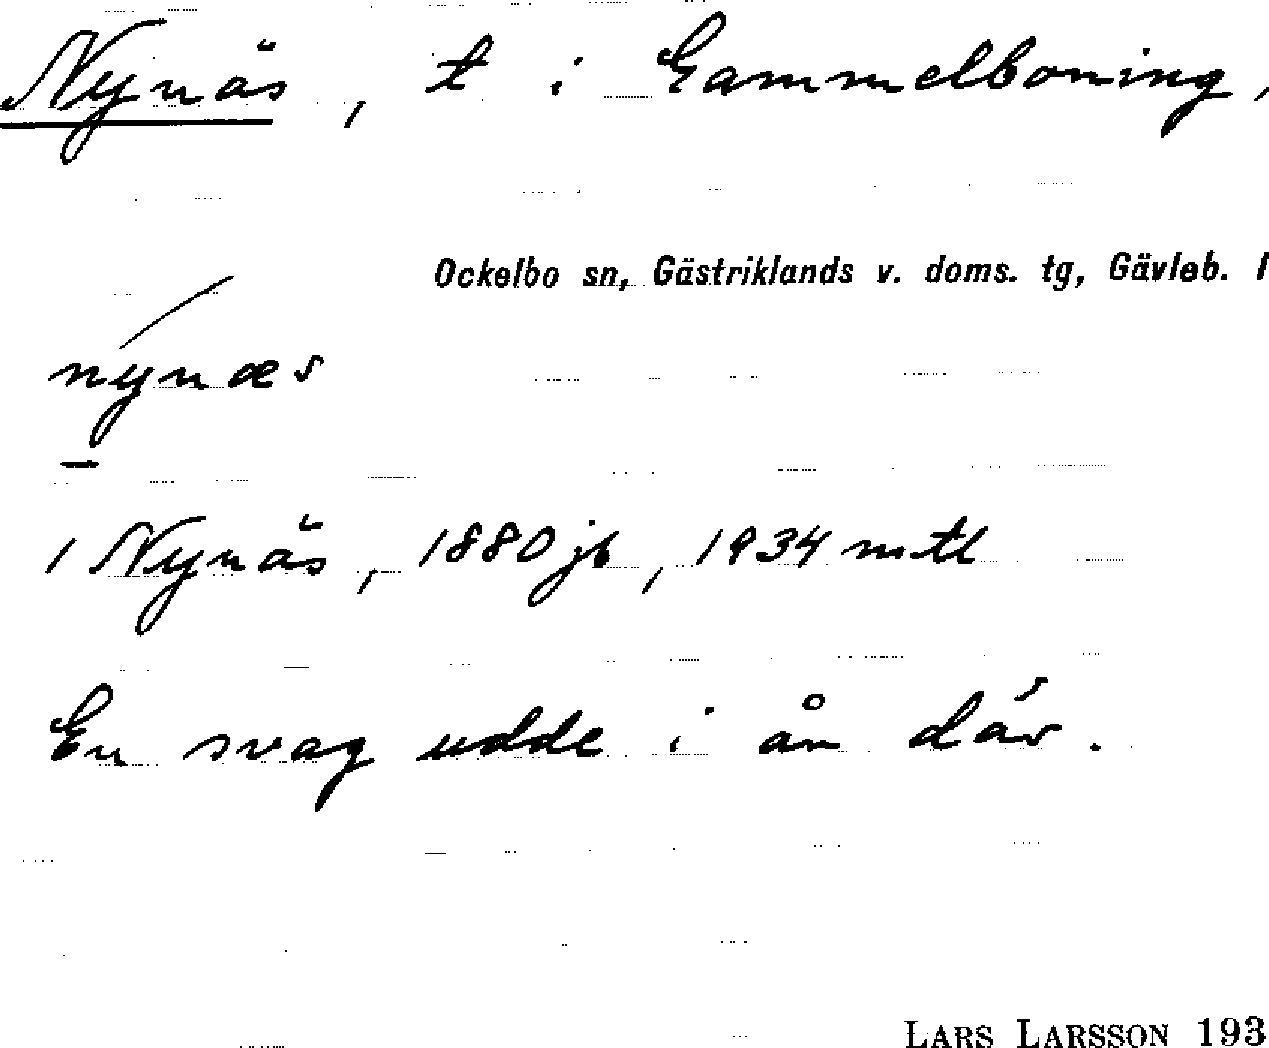 Nynäs, t i Gammelboning,
Ockelbo sn, Gästriklands v. doms. tg, Gävleb. l
nynæs
1 Nynäs, 1880 jb, 1934 mtl
En svag udde i ån där.
LARS LARSSON 193